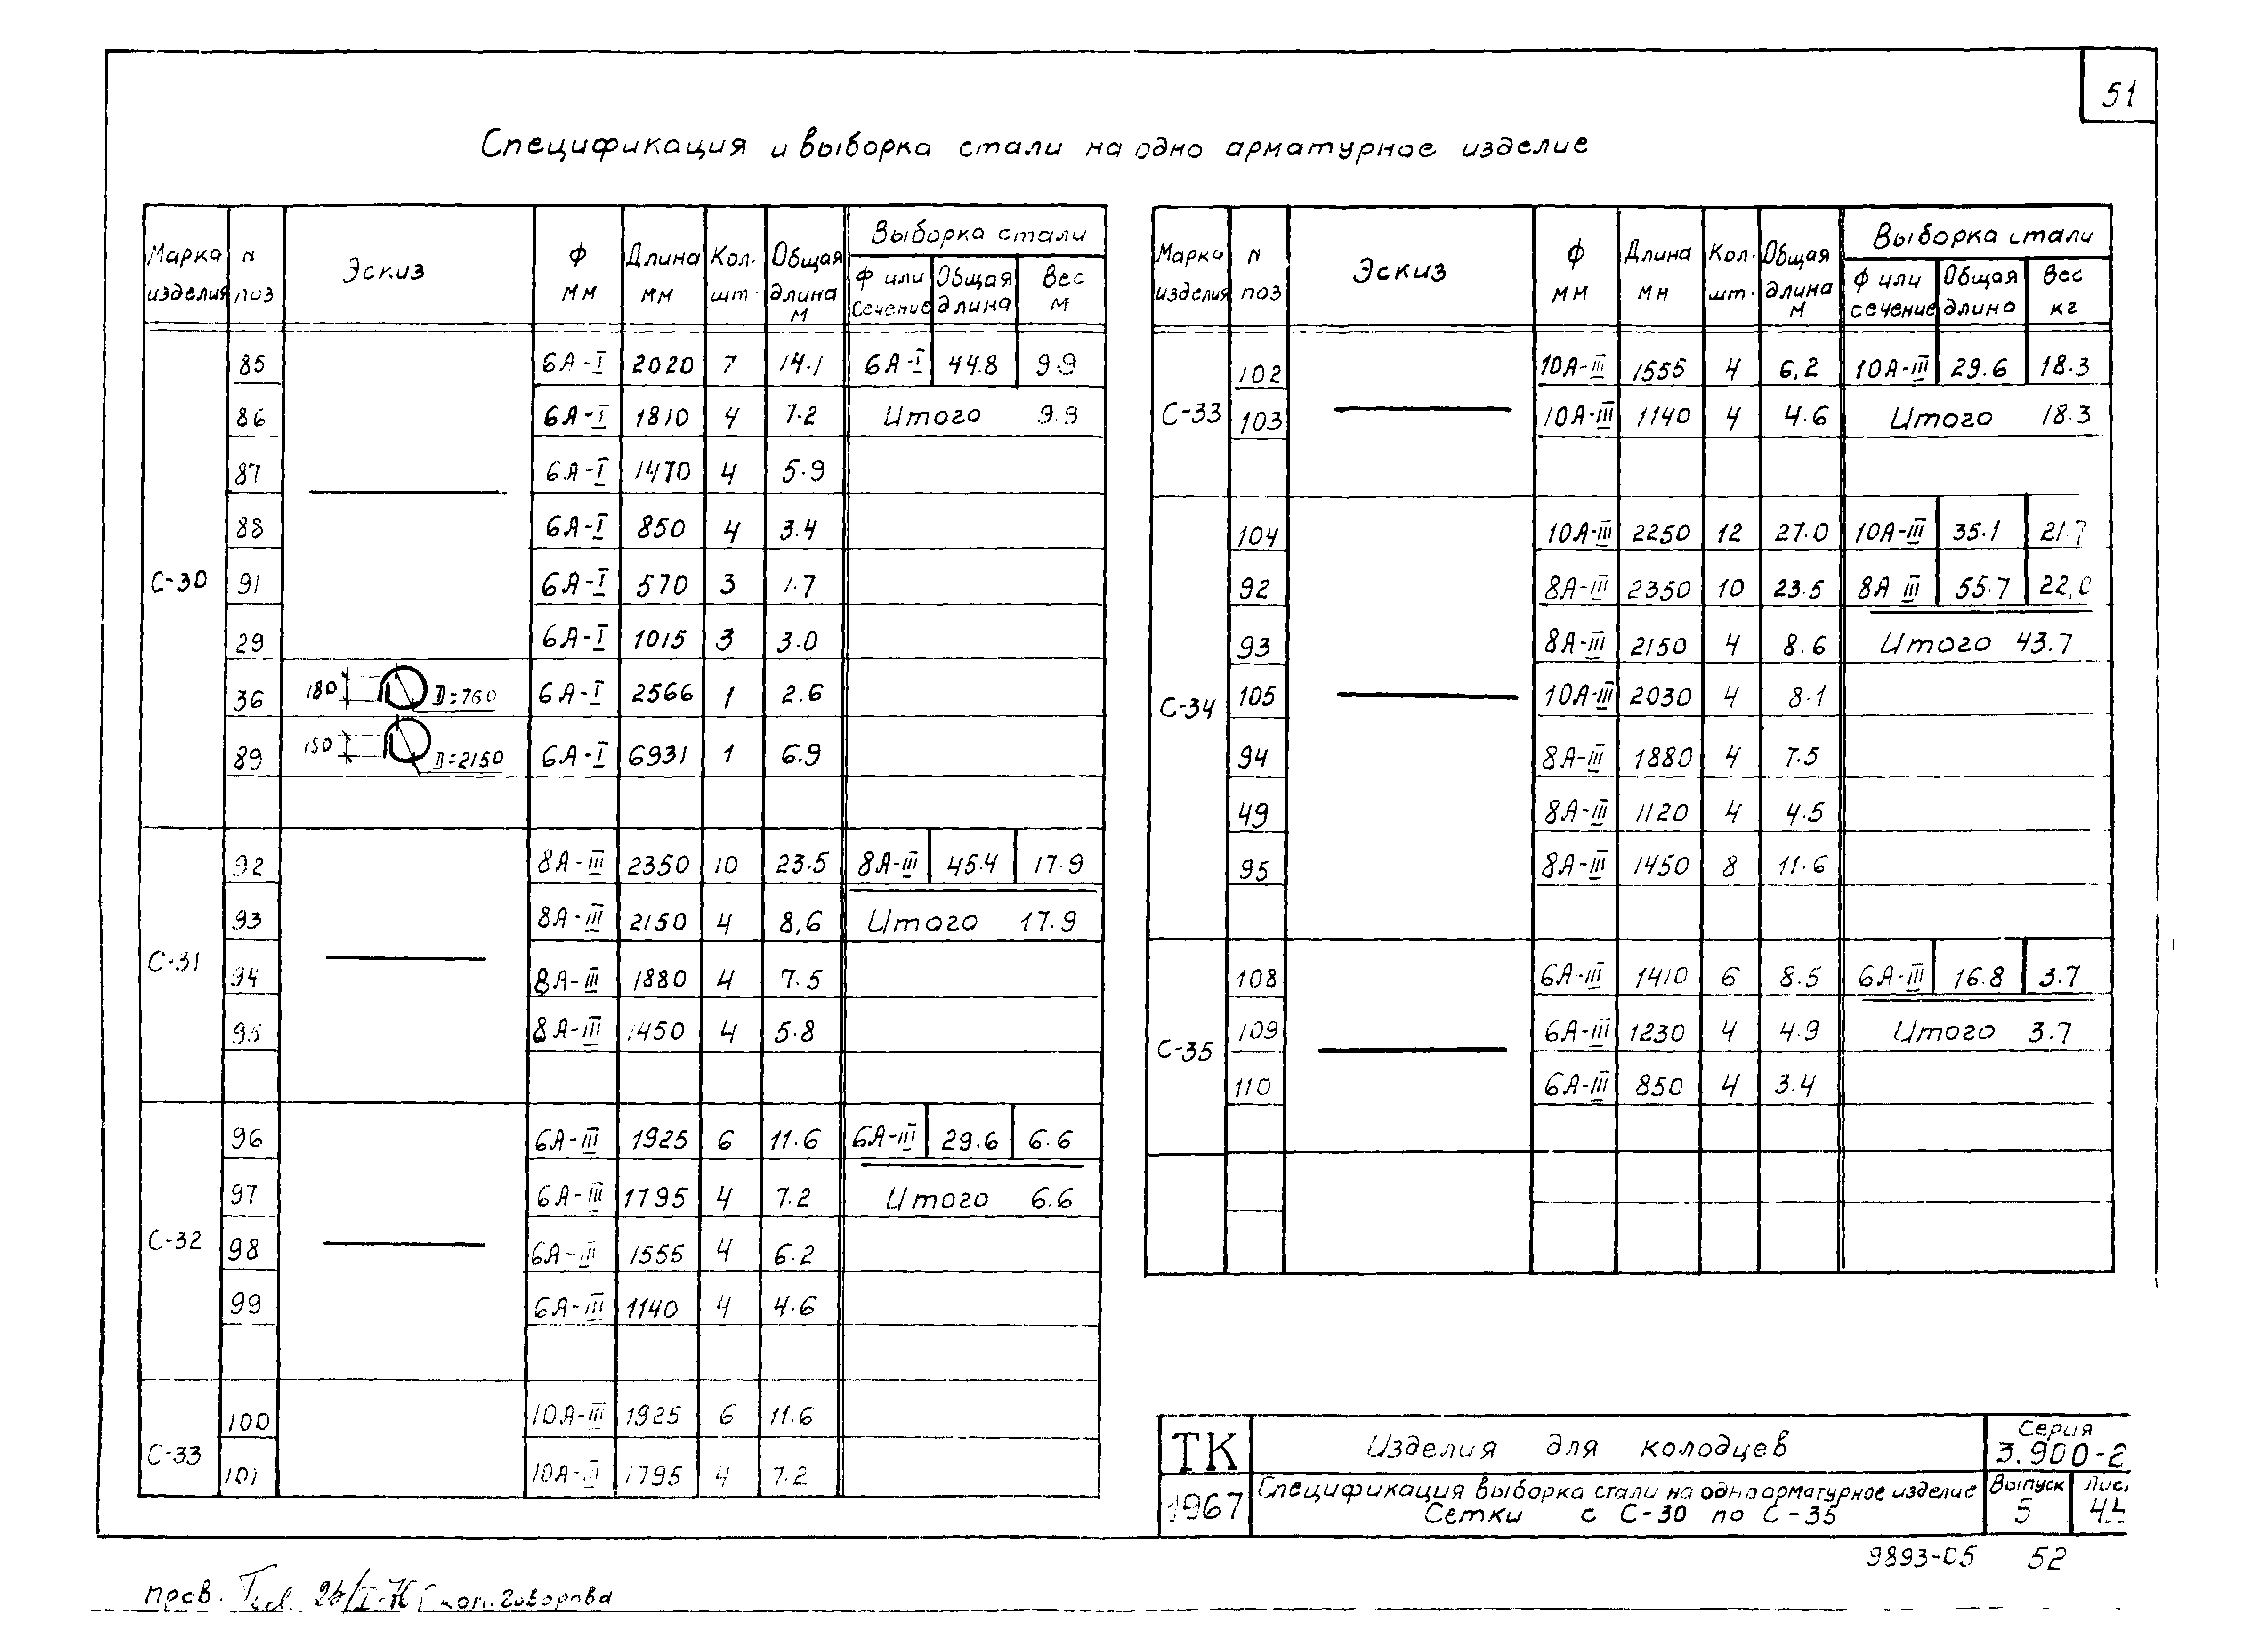 51
Спецификация и выборка стали на одно арматурное изделие
Марка изделия | N поз | Эскиз | Ф мм | Длина мм | Кол. шт. | Общая длина м | Выборка стали
Ф или сечение | Общая длина | Вес м
С-30
85 6А-I 2020 7 14.1 6А-I 44.8 9.9
86 6А-I 1810 4 7.2 Итого 9.9
87 6А-I 1470 4 5.9
88 6А-I 850 4 3.4
91 6А-I 570 3 1.7
29 6А-I 1015 3 3.0
36 180 D=760 6А-I 2566 1 2.6
89 150 D=2150 6А-I 6931 1 6.9
С-31
92 8А-III 2350 10 23.5 8А-III 45.4 17.9
93 8А-III 2150 4 8,6 Итого 17.9
94 8А-III 1880 4 7.5
95 8А-III 1450 4 5.8
С-32
96 6А-III 1925 6 11.6 6А-III 29.6 6.6
97 6А-III 1795 4 7.2 Итого 6.6
98 6А-III 1555 4 6.2
99 6А-III 1140 4 4.6
С-33
100 10А-III 1925 6 11.6
101 10А-III 1795 4 7.2
Марка изделия | N поз | Эскиз | Ф мм | Длина мм | Кол. шт. | Общая длина м | Выборка стали
Ф или сечение | Общая длина | Вес кг
С-33
102 10А-III 1555 4 6,2 10А-III 29.6 18.3
103 10А-III 1140 4 4.6 Итого 18.3
С-34
104 10А-III 2250 12 27.0 10А-III 35.1 21.7
92 8А-III 2350 10 23.5 8А III 55.7 22,0
93 8А-III 2150 4 8.6 Итого 43.7
105 10А-III 2030 4 8.1
94 8А-III 1880 4 7.5
49 8А-III 1120 4 4.5
95 8А-III 1450 8 11.6
С-35
108 6А-III 1410 6 8.5 6А-III 16.8 3.7
109 6А-III 1230 4 4.9 Итого 3.7
110 6А-III 850 4 3.4
ТК
1967
Изделия для колодцев
Спецификация выборка стали на одно арматурное изделие
Сетки с С-30 по С-35
Серия
3.900-2
Выпуск
5
9893-05 52
коп. Говорова